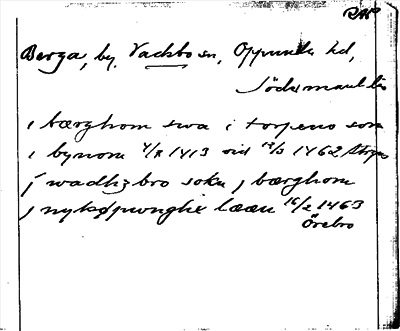 RAP
Berga, by, Vadsbo sn, Oppunda hd,
Södermanl. län
i bærghom swa i torpeno som
i bynom 4/7 1413 vid 12/3 1462
j wadhzbro sokn j bærghom
j nyköpwnghx læen 16/2 1463
Örebro